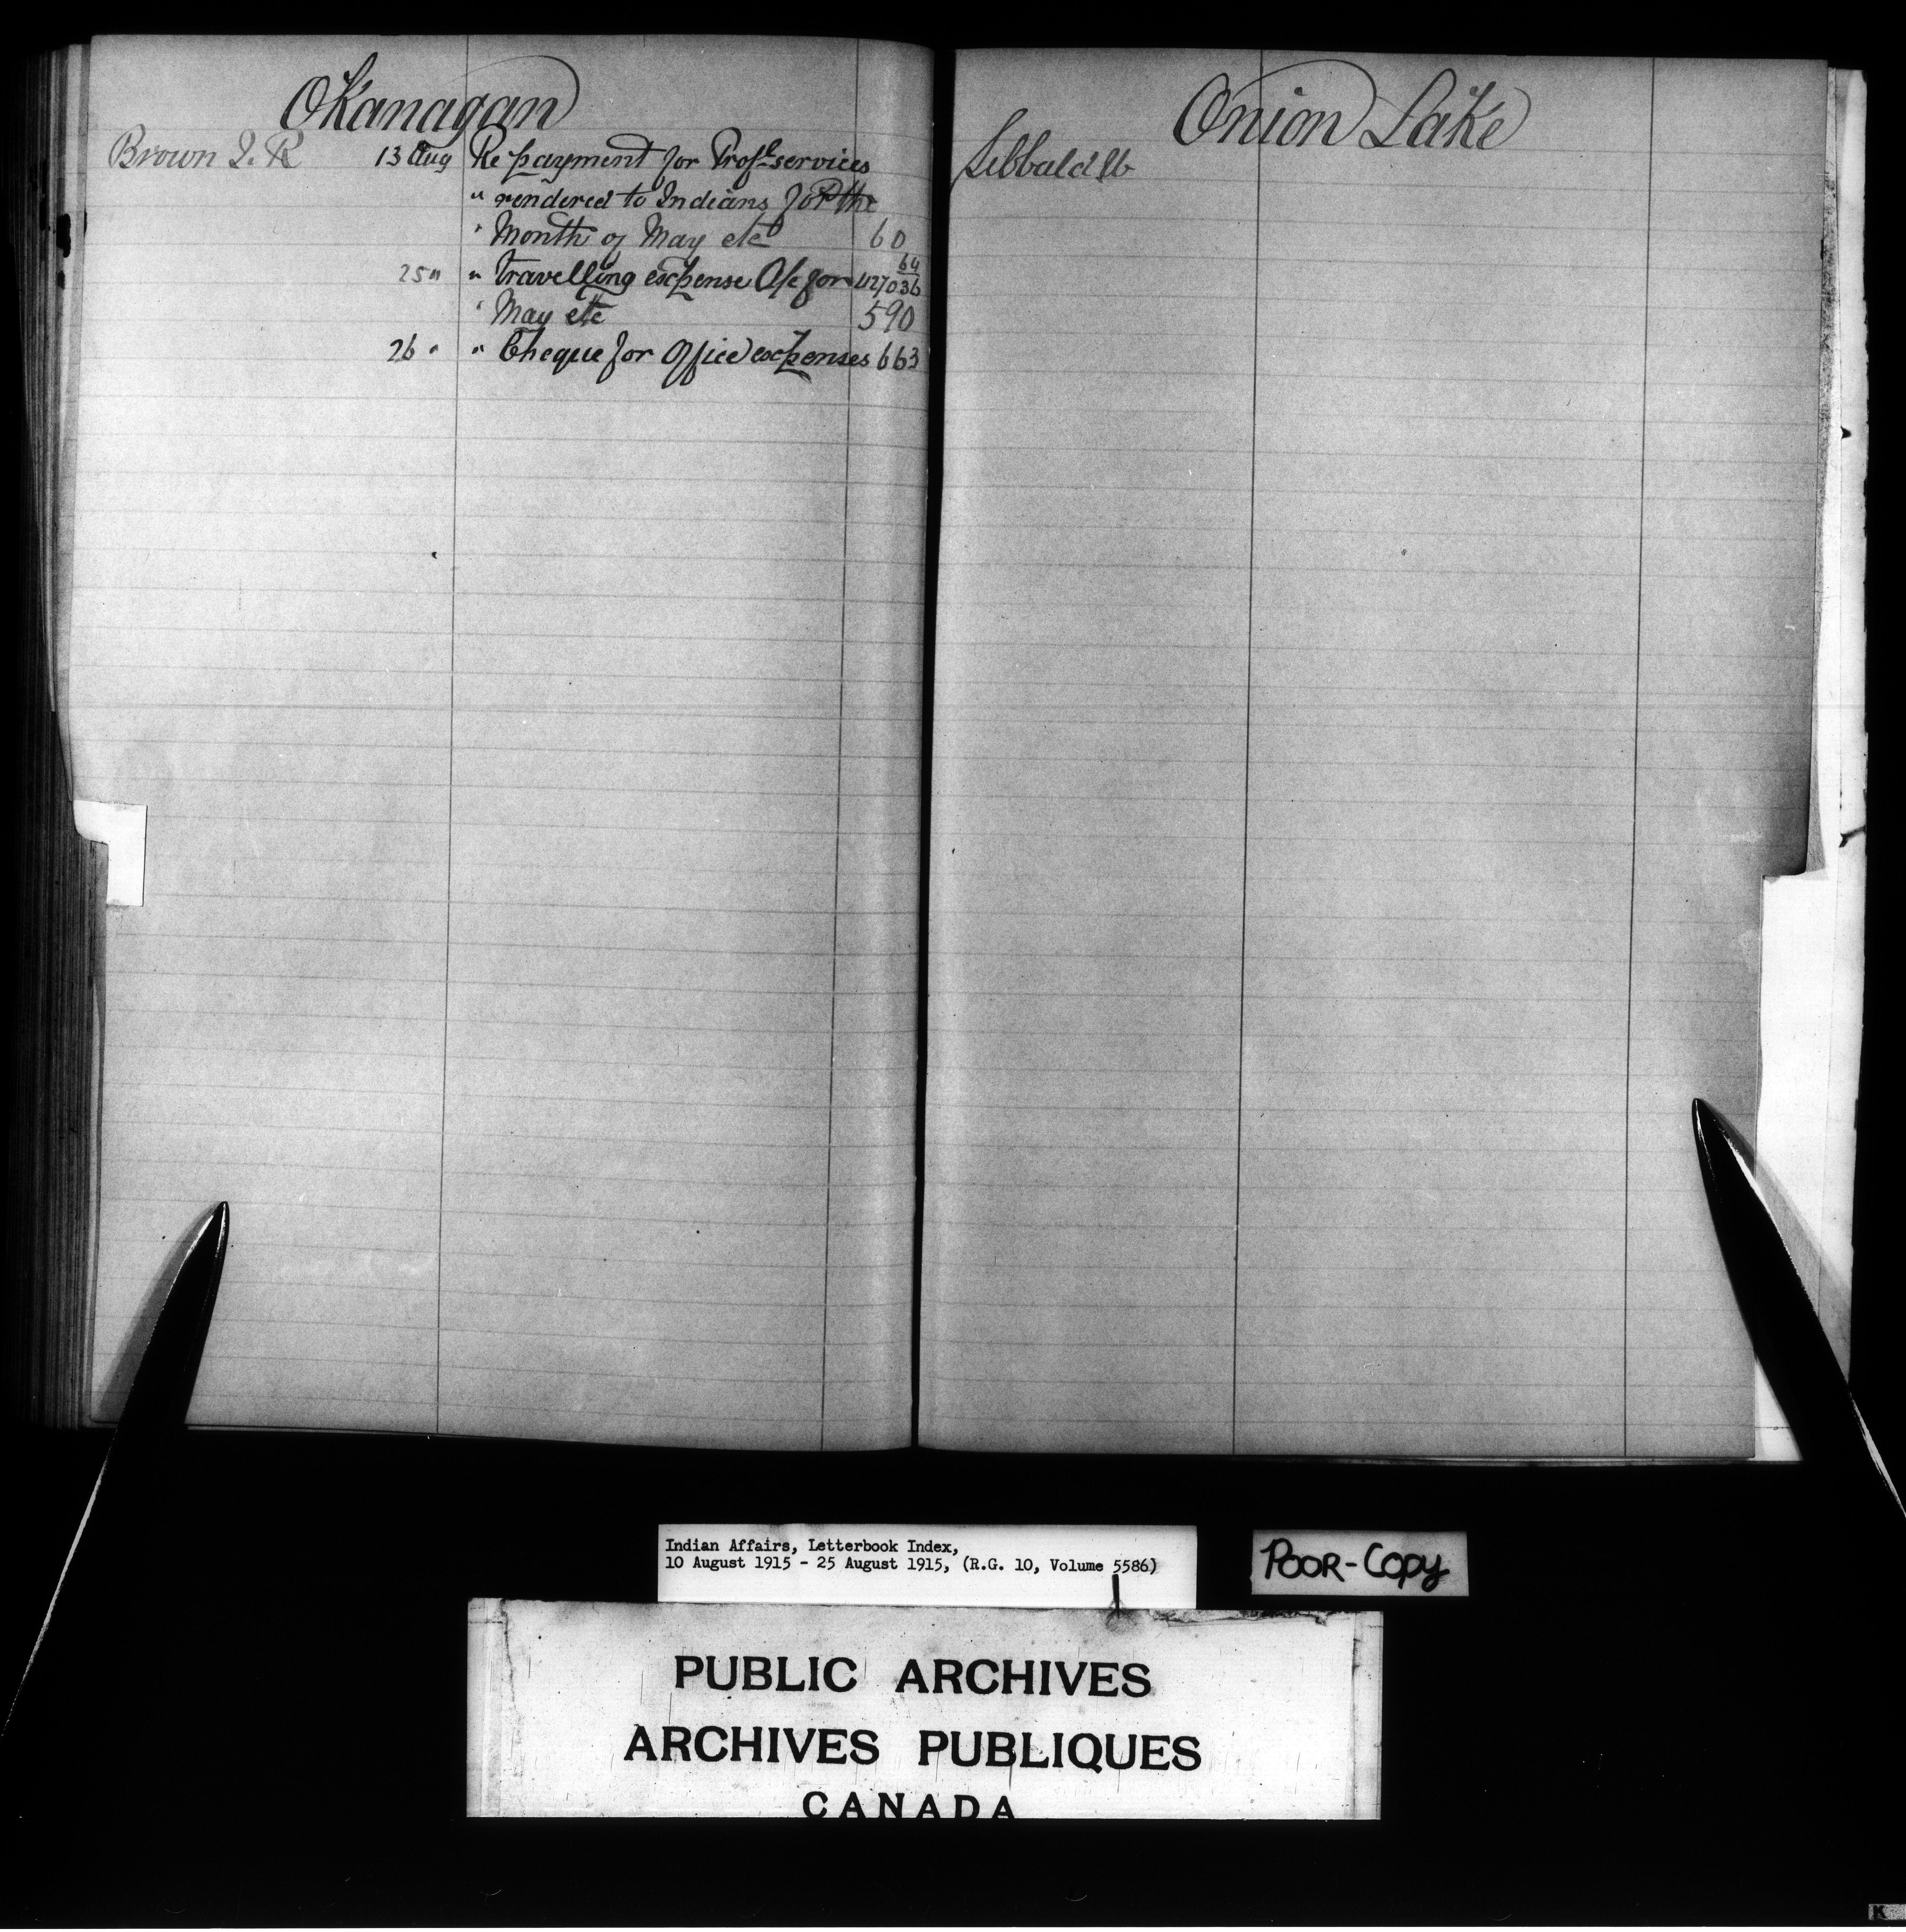 Okanagan
Brown J. R 13 Aug Re payment for Profl services
" rendered to Indians for the
" Month of May etc 60
64
25 " " travelling expense A/c for 427036
" May etc 590
26 " " Cheque for Office expenses 663
Onion Lake
Sibbald W
Indian Affairs, Letterbook Index,
10 August 1915 - 25 August 1915, (R.G. 10, Volume 5586)
POOR-COPY
PUBLIC ARCHIVES
ARCHIVES PUBLIQUES
CANADA
K